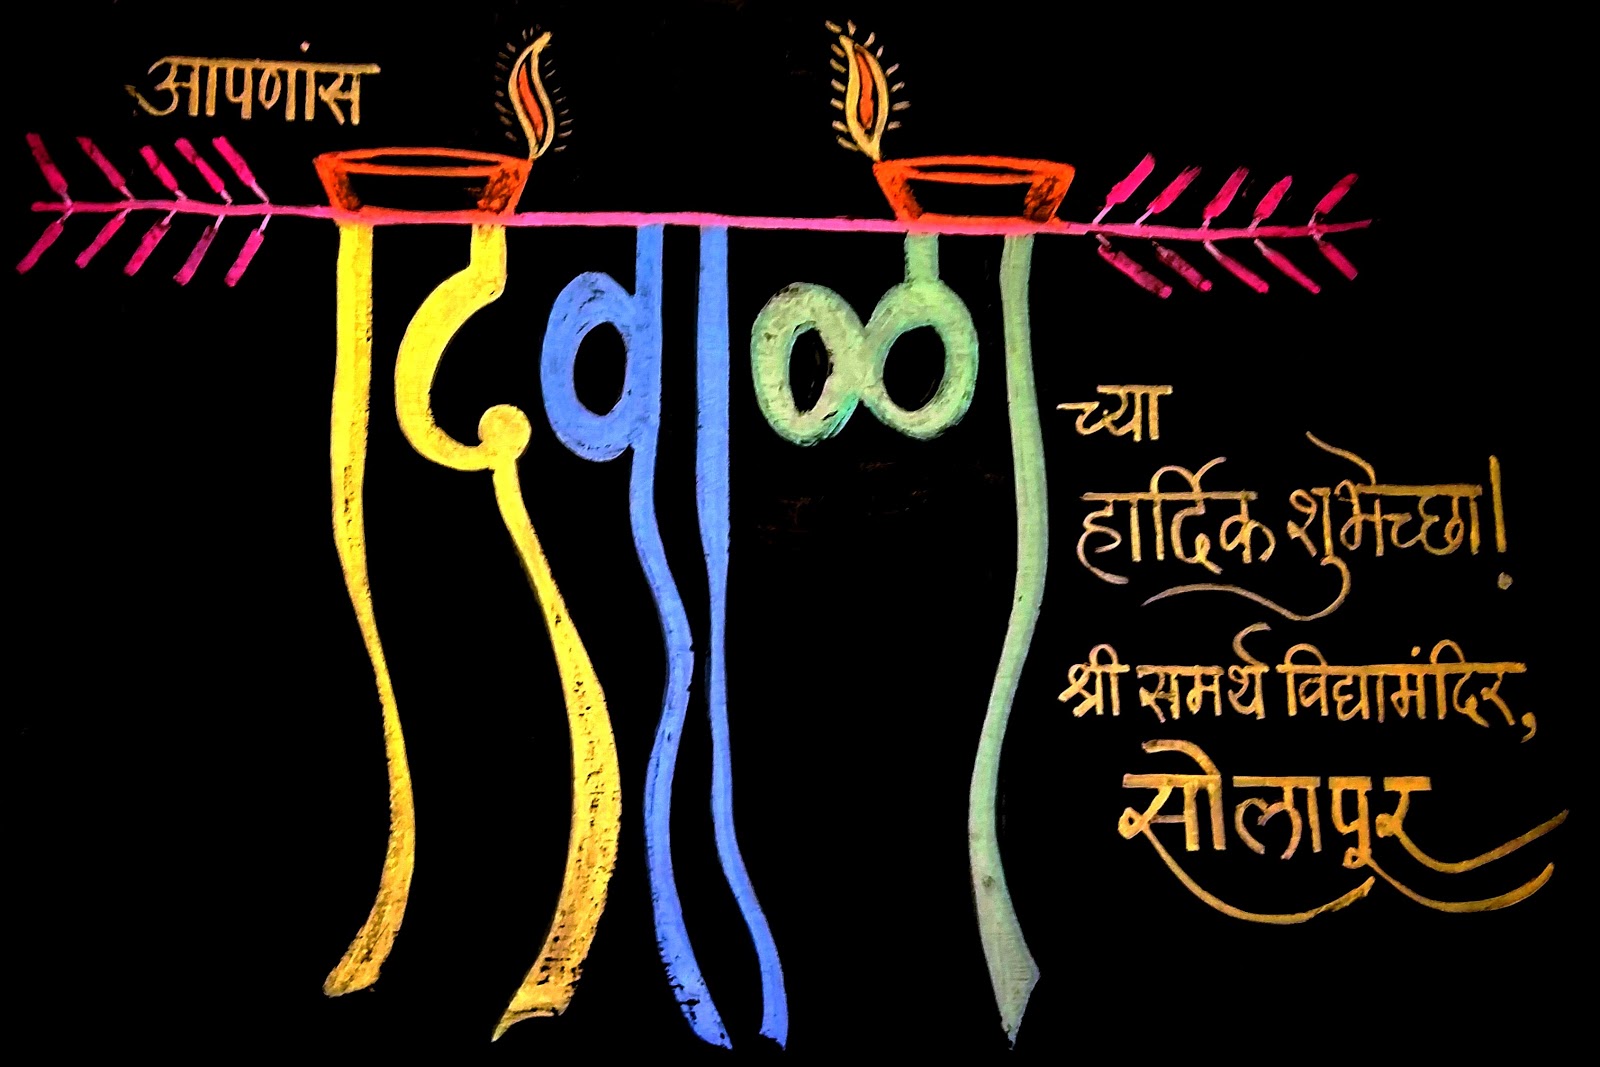 आपणांस
दिवाळी
च्या
हार्दिक शुभेच्छा!
श्री समर्थ विद्यामंदिर,
सोलापूर